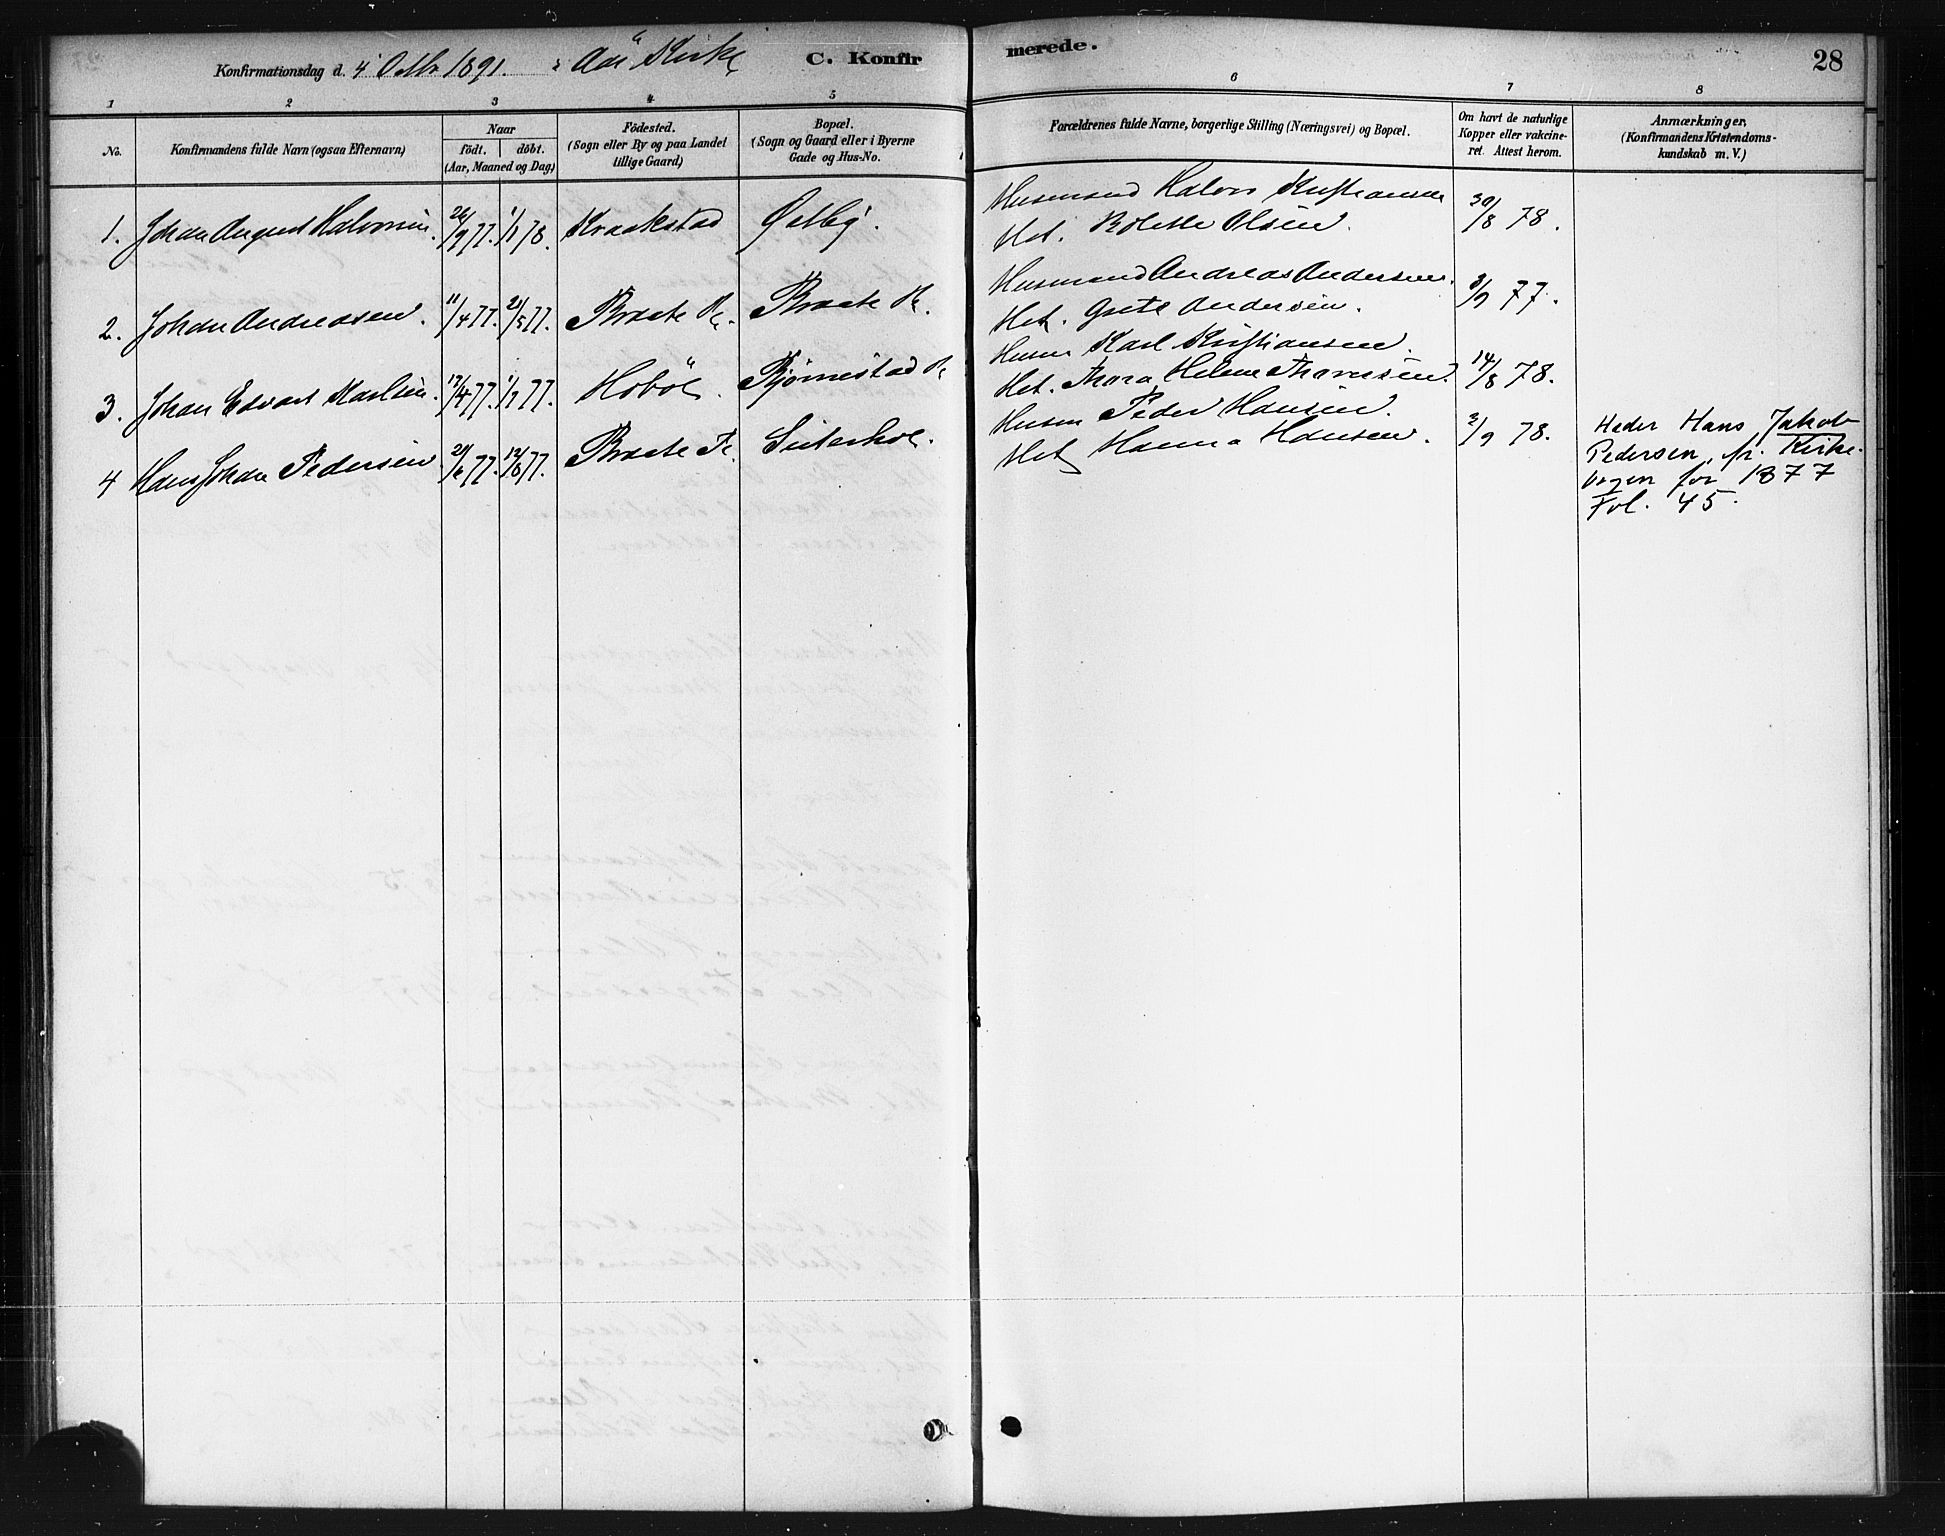 Konfirmationsdag d. 4 Octbr 1891. i Aas Kirke
C. Konfirmerede.
28
1 2 3 4 5 6 7 8
No.
Konfirmandens fulde Navn (ogsaa Efternavn)
Naar
födt. döbt.
(Aar, Maaned og Dag)
Födested.
(Sogn eller By og paa Landet
tillige Gaard)
Bopæl.
(Sogn og Gaard eller i Byerne
Gade og Hus-No.
Forældrenes fulde Navne, borgerlige Stilling (Næringsvei) og Bopæl.
Om havt de naturlige
Kopper eller vakcine-
ret. Attest herom.
Anmærkninger,
(Konfirmandens Kristendoms-
kundskab m. V.)
1. Johan August Halvorsen. 26/9 77. 1/1 78. Kraakstad Østby. Husmand Halvor Kristiansen 30/8 78.
Het. Bolette Olsen.
2. Johan Andreasen. 11/4 77. 21/5 77. Braate Braate Husmand Andreas Andersen. 3/9 77.
Het. Grete Andersen.
3. Johan Edvart Karlsen. 12/4 77. 1/7 77. Hobøl. Bjørnestad Husm Karl Kristiansen. 14/8 78.
Het. Thora Helene Thoresen.
4 Hans Johan Pedersen 21/6 77. 12/8 77. Braate Husm Peder Hansen. 2/9 78.
Het Hanna Hansen.
Heder Hans Jakob
Pedersen, fr. Kirke-
bogen for 1877
Fol. 45.